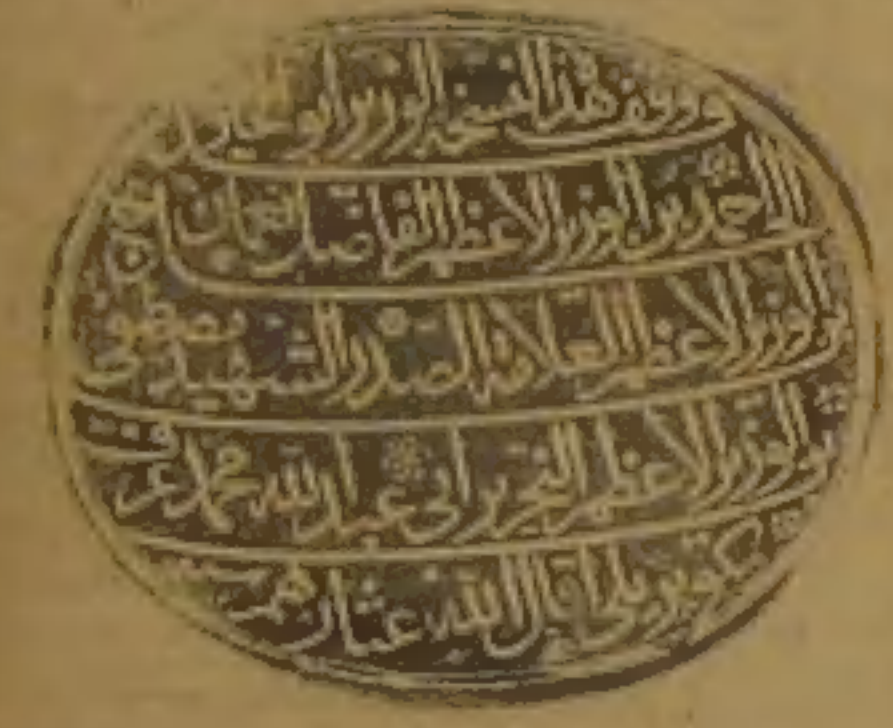 وقف هذا النسخة الوزير ابو العباس
احمد بن الوزير الاعظم الفاضل نعمان بن
الوزير الاعظم العلامة الصدر الشهيد مصطفى
بن الوزير الاعظم النحرير ابي عبد الله محمد عرف
بكوپريلي اقال الله عثارهم